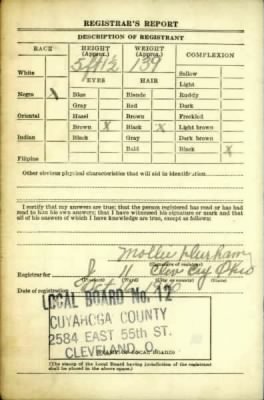 REGISTRAR'S REPORT
DESCRIPTION OF REGISTRANT
RACE HEIGHT (Approx.) WEIGHT (Approx.) COMPLEXION
5 ft 1½ 139
White Sallow
EYES HAIR Light
Negro X Blue Blonde Ruddy
Gray Red Dark
Oriental Hazel Brown Freckled
Brown X Black X Light brown
Indian Black Gray Dark brown
Bald Black X
Filipino
Other obvious physical characteristics that will aid in identification
I certify that my answers are true; that the person registered has read or has had read to him his own answers; that I have witnessed his signature or mark and that all of his answers of which I have knowledge are true, except as follows:
Mollie Durham
(Signature of registrar)
Registrar for Clev Ohio
(Precinct) (Ward) (City or county) (State)
Date of registration
LOCAL BOARD No. 12
CUYAHOGA COUNTY
2584 EAST 55th ST.
CLEVELAND, O.
(STAMP OF LOCAL BOARD)
(The stamp of the Local Board having jurisdiction of the registrant shall be placed in the above space.)